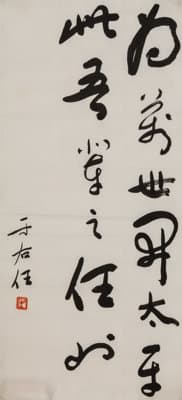 為萬世開太平
此吾輩之任也
于右任